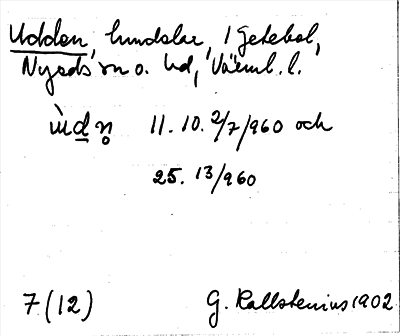 Udden, lundelar, i Getebol,
Nyeds sn o. hd, Värml. l.
ùdn̥ 11. 10. 2/7/960 och
25. 13/960
7 (12)
G. Kallstenius 1902